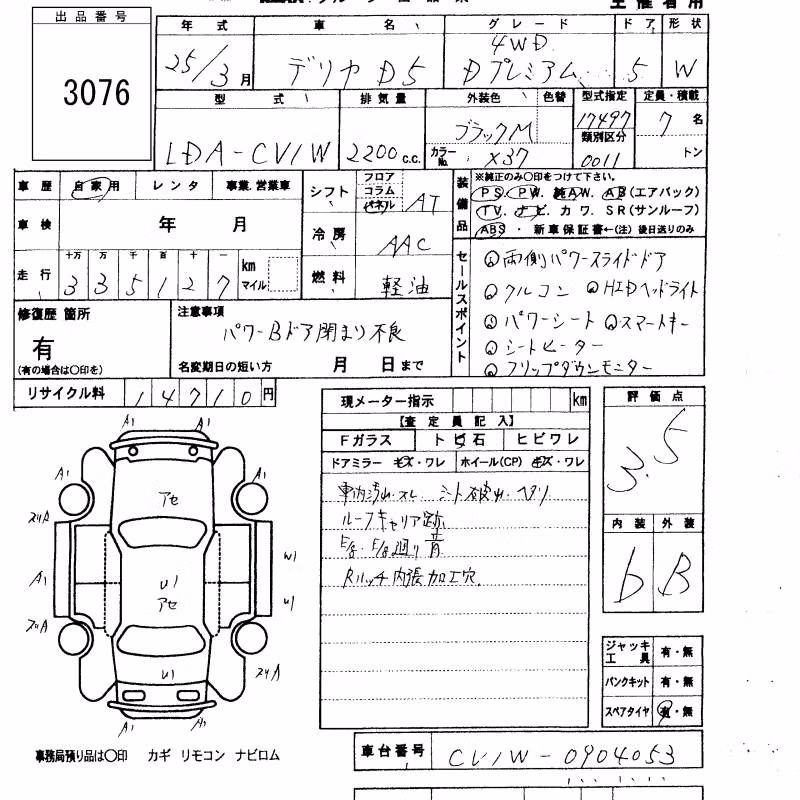 出品番号
3076
年式 車名 グレード ドア 形状
25/3月 デリカD5 4WD Dプレミアム 5 W
型式 排気量 外装色 色替 型式指定 定員・積載
LDA-CV1W 2200c.c. ブラックM 17497 7名
カラーNo. X37 類別区分 0011 トン
車歴 自家用 レンタ 事業,営業車
シフト フロア コラム パネル AT
装備品
※純正のみ〇印をつけて下さい。
PS. PW. 純AW. AB(エアバック)
TV. ナビ. カワ. SR(サンルーフ)
ABS・新車保証書←(注)後日送りのみ
車検 年 月
冷房 AAC
走行 十万 万 千 百 十 一 km マイル
335127
燃料 軽油
セールスポイント
両側パワースライドドア
クルコン HIDヘッドライト
パワーシート スマートキー
シートヒーター
フリップダウンモニター
修復歴 箇所
有
(有の場合は〇印を)
注意事項
パワーBドア閉まり不良
名変期日の短い方 月 日まで
リサイクル料 14710円
現メーター指示 km
【査定員記入】
Fガラス トビ石 ヒビワレ
ドアミラー キズ・ワレ ホイール(CP) キズ・ワレ
車内汚れ.スレ シート破れ.ヘタリ
ルーフキャリア跡
E/g. E/g廻り音
Rハッチ内張加工穴
評価点
3.5
内装 外装
b B
A1 A1
A1 A1
アセ
ズリA
A1 W1
U1 U1
アセ
ズリA
U1 ズリA
A1 A1
ジャッキ工具 有・無
パンクキット 有・無
スペアタイヤ 有・無
事務局預り品は〇印 カギ リモコン ナビロム
車台番号 CV1W-0904053